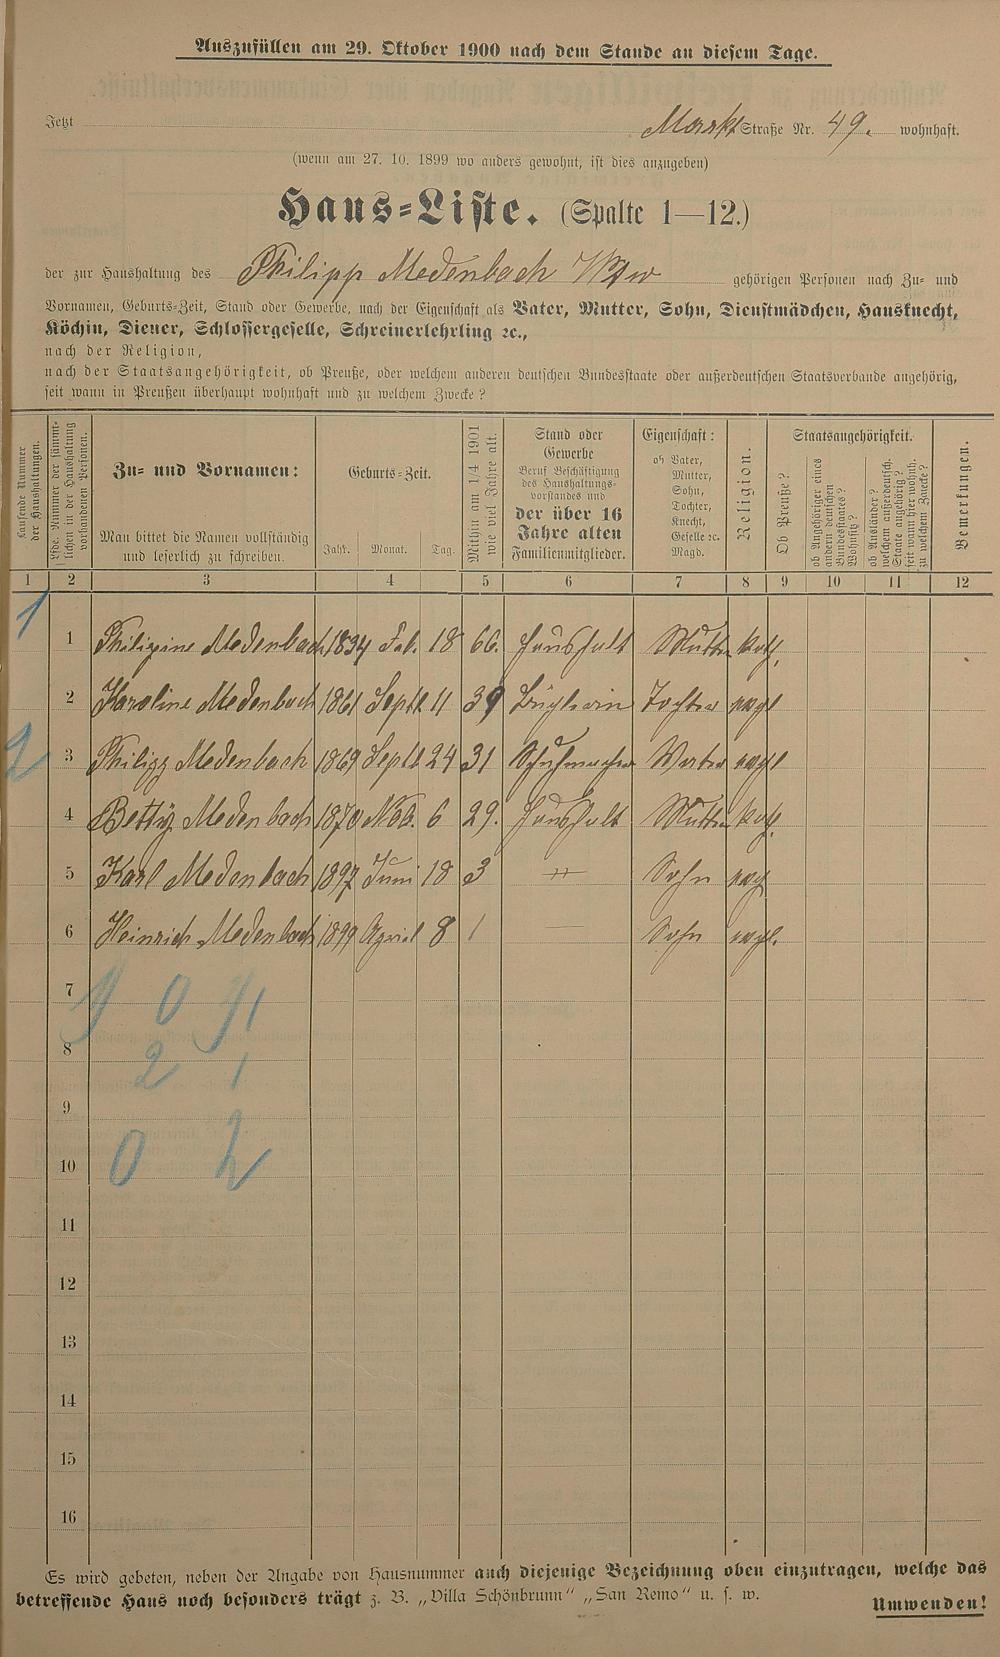 Auszufüllen am 29. Oktober 1900 nach dem Stande an diesem Tage.
Jetzt Markt Straße Nr. 49. wohnhaft.
(wenn am 27. 10. 1899 wo anders gewohnt, ist dies anzugeben)
Haus-Liste. (Spalte 1—12.)
der zur Haushaltung des Philipp Medenbach Wtw gehörigen Personen nach Zu- und
Vornamen, Geburts-Zeit, Stand oder Gewerbe, nach der Eigenschaft als Vater, Mutter, Sohn, Dienstmädchen, Hausknecht,
Köchin, Diener, Schlossergeselle, Schreinerlehrling ꝛc.,
nach der Religion,
nach der Staatsangehörigkeit, ob Preuße, oder welchem anderen deutschen Bundesstaate oder außerdeutschen Staatsverbande angehörig,
seit wann in Preußen überhaupt wohnhaft und zu welchem Zwecke?
Laufende Nummer
der Haushaltungen.
Lfde. Nummer der sämmt-
lichen in der Haushaltung
vorhandenen Personen.
Zu- und Vornamen:
Man bittet die Namen vollständig
und leserlich zu schreiben.
Geburts-Zeit.
Jahr. Monat. Tag.
Mithin am 1/4 1901
wie viel Jahre alt.
Stand oder
Gewerbe
Beruf Beschäftigung
des Haushaltungs-
vorstandes und
der über 16
Jahre alten
Familienmitglieder.
Eigenschaft:
ob Vater,
Mutter,
Sohn,
Tochter,
Knecht,
Geselle ꝛc.
Magd.
Religion.
Staatsangehörigkeit.
Ob Preuße?
ob Angehöriger eines
andern deutschen
Bundesstaates?
Wohnsitz?
ob Ausländer?
welchem außerdeutsch.
Staate angehörig?
seit wann hier wohnh.
zu welchem Zwecke?
Bemerkungen.
1 2 3 4 5 6 7 8 9 10 11 12
1
1 Philipine Medenbach 1834 Feb. 18 66. Haushalt Mutter Kath.
2 Karoline Medenbach 1861 Septb. 11 39 Büglerin Tochter evgl
2
3 Philipp Medenbach 1869 Septb 24 31 Schuhmacher Vater evgl
4 Betty Medenbach 1870 Nob. 6 29. Haushalt Mutter Kath.
5 Karl Medenbach 1897 Juni 18 3 " Sohn evg
6 Heinrich Medenbach 1899 April 8 1 — Sohn evgl.
7
8
2 1
9
10
0 2
11
12
13
14
15
16
Es wird gebeten, neben der Angabe von Hausnummer auch diejenige Bezeichnung oben einzutragen, welche das
betreffende Haus noch besonders trägt z. B. „Villa Schönbrunn“ „San Remo“ u. s. w.
Umwenden!